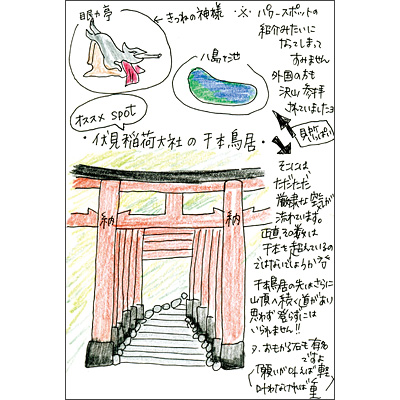 眼力亭
←きつねの神様
八島ヶ池
※ パワースポットの
紹介みたいに
なってしまって
すみません
外国の方も
沢山参拝
されていましたヨ
見所いっぱい
オススメ spot
・伏見稲荷大社の千本鳥居・
そこには
ただただ
厳粛な空気が
流れています。
正直、その数は
千本を超えているの
ではないでしょうか??
千本鳥居の先はさらに
山頂へ続く道があり
思わず登らずには
いられません!!
おもかる石も有名
ですよ
願いが叶えば軽
叶わなければ重
納
納